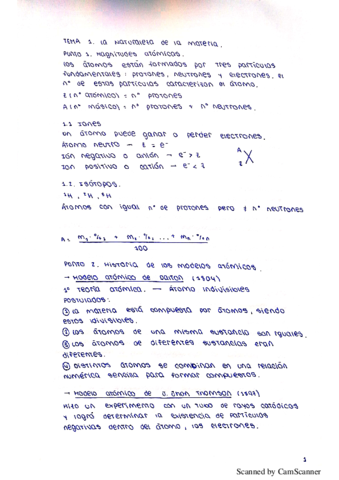 TEMA 1. La naturaleza de la materia.
Punto 1. Magnitudes atómicas.
Los átomos están formados por tres partículas
fundamentales: protones, neutrones y electrones. El
nº de estas partículas caracterizan el átomo.
Z (nº atómico) = nº protones
A (nº másico) = nº protones + nº neutrones.
1.1 Iones
Un átomo puede ganar o perder electrones.
Átomo neutro → Z = e⁻
Ión negativo o anión → e⁻ > Z
Ión positivo o catión → e⁻ < Z
A
Z X
1.2. Isótopos.
¹H, ²H, ³H
Átomos con igual nº de protones pero ≠ nº neutrones
A = m₁·%₁ + m₂·%₂ ... + mₙ·%n
100
Punto 2. Historia de los modelos atómicos.
→ Modelo atómico de Dalton (1804)
1ª Teoría atómica. → Átomo indivisibles
Postulados:
① La materia está compuesta por átomos, siendo
estos idivisibles.
② Los átomos de una misma sustancia son iguales.
③ Los átomos de diferentes sustancias eran
diferentes.
④ Distintos átomos se combinan en una relación
numérica sencilla para formar compuestos.
→ Modelo atómico de J. Jhon Thomson (1897)
Hizo un experimento con un tubo de rayos catódicos
y logró determinar la existencia de partículas
negativas dentro del átomo, los electrones.
1
Scanned by CamScanner